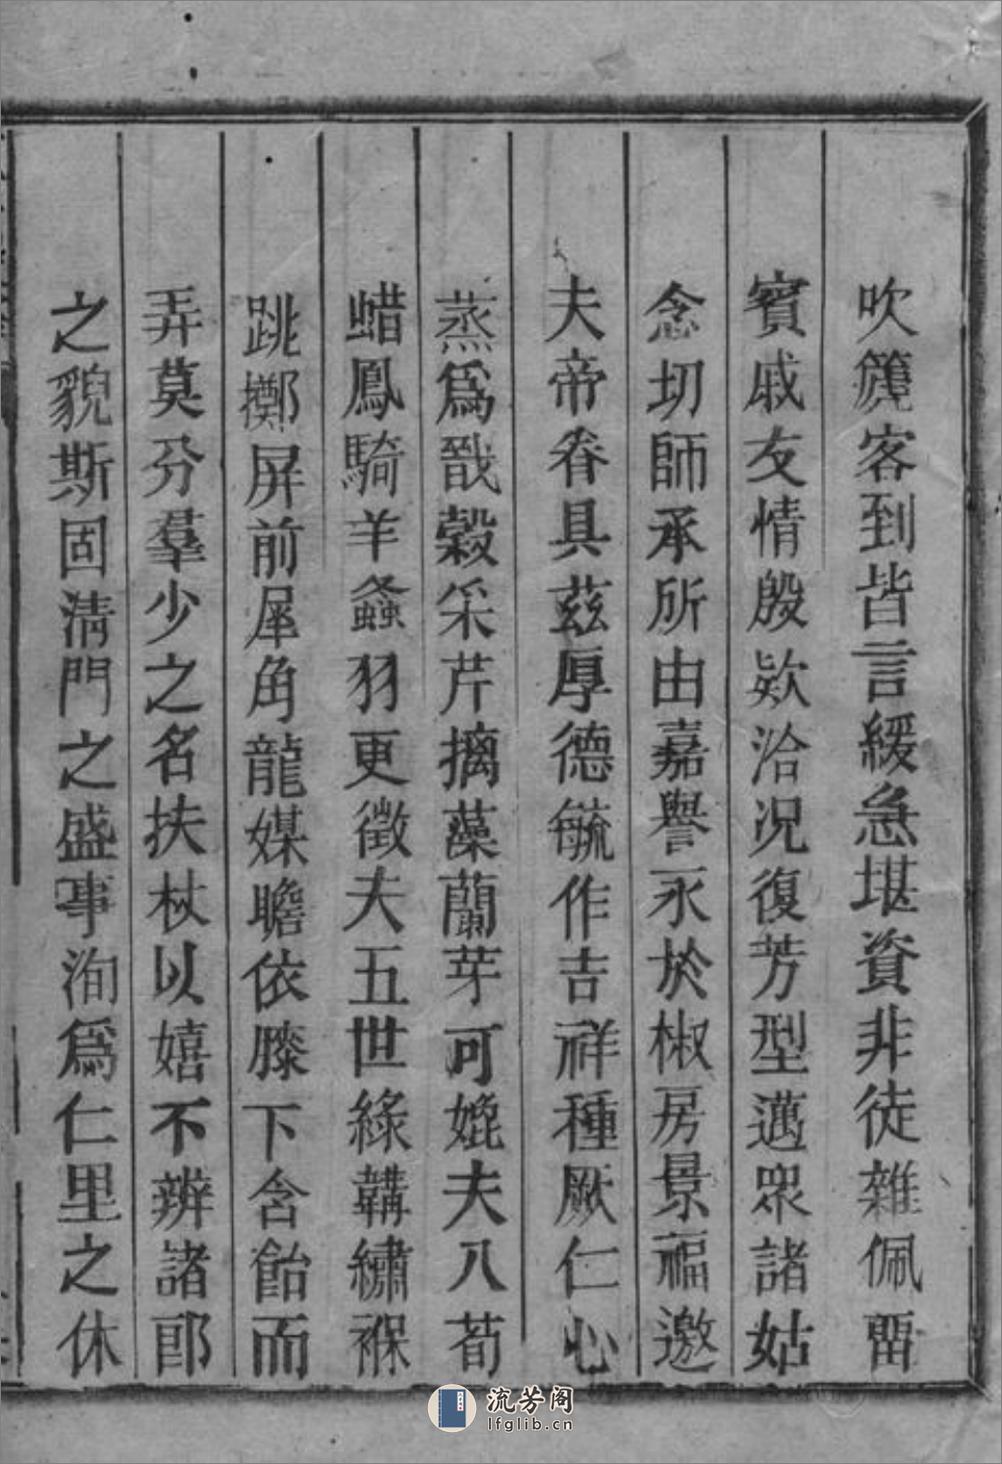 吹篪客到皆言緩急堪資非徒雜佩畱
賓戚友情殷欵洽况復芳型邁眾諸姑
念切師承所由嘉譽永於椒房景福邀
夫帝眷具茲厚德毓作吉祥種厥仁心
蒸爲戩榖采芹摛藻蘭芽可娩夫八荀
蜡鳳騎羊螽羽更徵夫五世綠韝繡褓
跳擲屏前犀角龍媒瞻依膝下含飴而
弄莫分羣少之名扶杖以嬉不辨諸郎
之貌斯固清門之盛事洵爲仁里之休
流芳阁
lfglib.cn